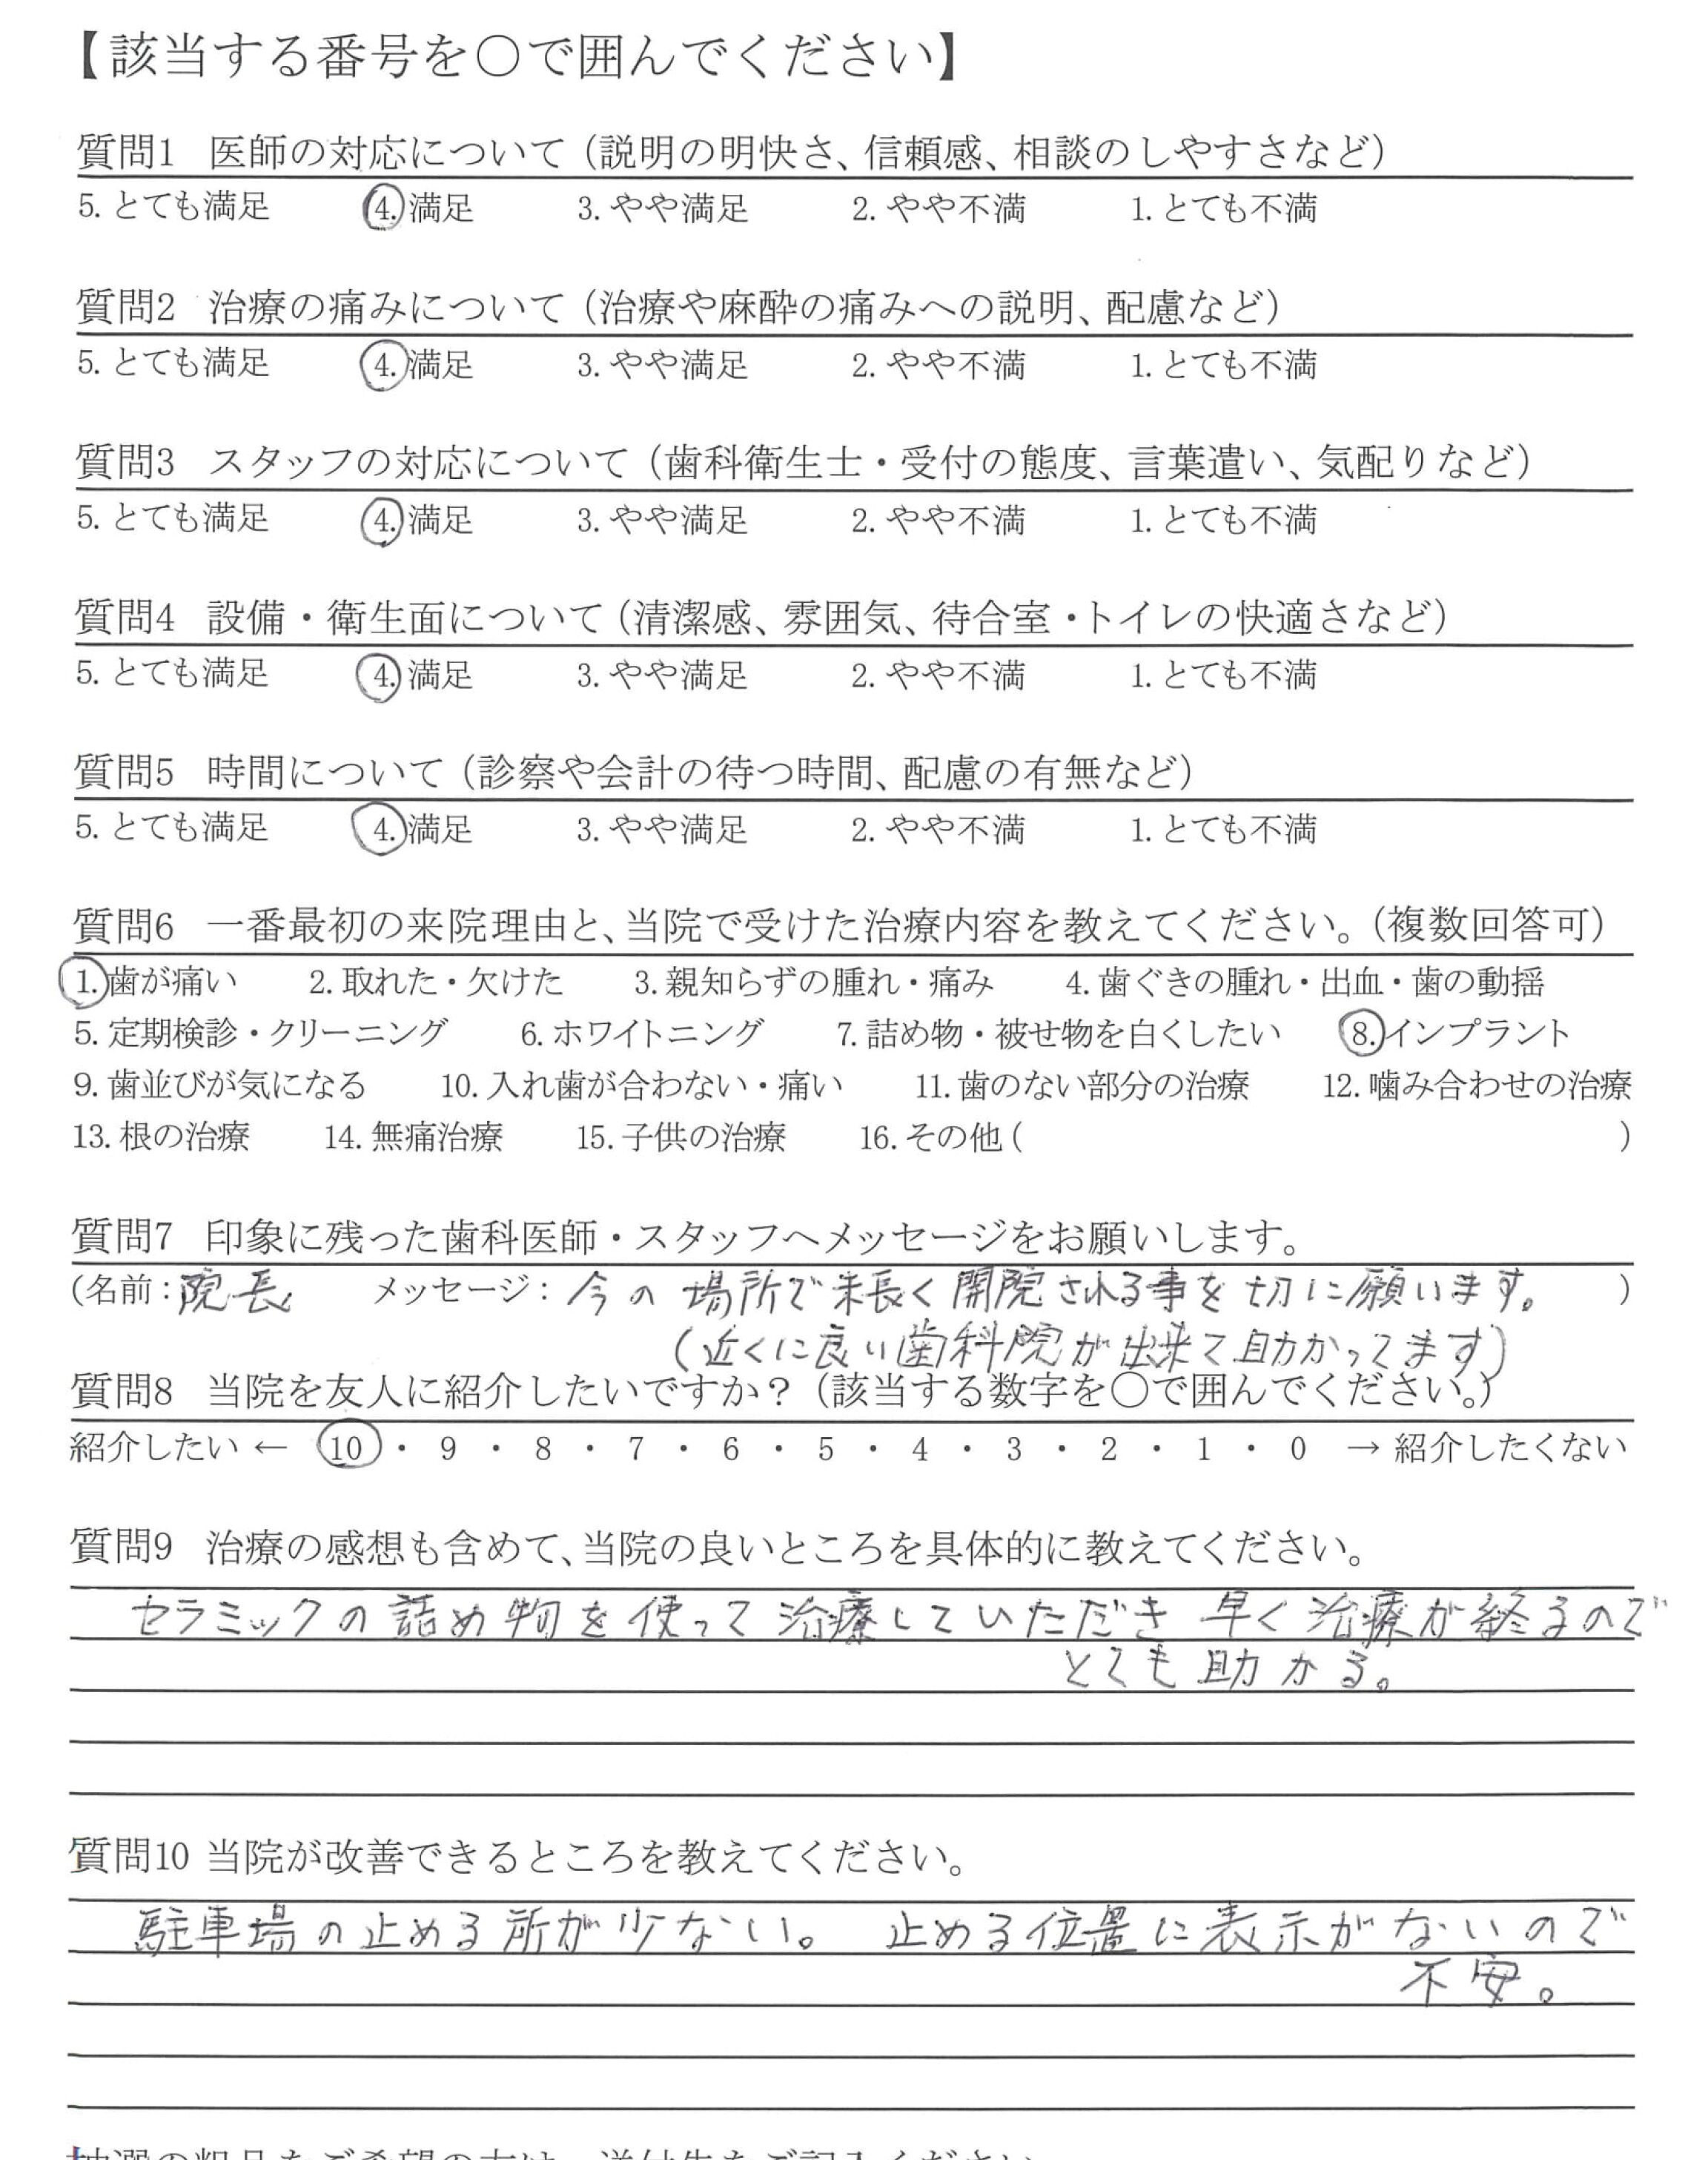 【該当する番号を〇で囲んでください】
質問1 医師の対応について（説明の明快さ、信頼感、相談のしやすさなど）
5. とても満足 4. 満足 3. やや満足 2. やや不満 1. とても不満
質問2 治療の痛みについて（治療や麻酔の痛みへの説明、配慮など）
5. とても満足 4. 満足 3. やや満足 2. やや不満 1. とても不満
質問3 スタッフの対応について（歯科衛生士・受付の態度、言葉遣い、気配りなど）
5. とても満足 4. 満足 3. やや満足 2. やや不満 1. とても不満
質問4 設備・衛生面について（清潔感、雰囲気、待合室・トイレの快適さなど）
5. とても満足 4. 満足 3. やや満足 2. やや不満 1. とても不満
質問5 時間について（診察や会計の待つ時間、配慮の有無など）
5. とても満足 4. 満足 3. やや満足 2. やや不満 1. とても不満
質問6 一番最初の来院理由と、当院で受けた治療内容を教えてください。（複数回答可）
1. 歯が痛い 2. 取れた・欠けた 3. 親知らずの腫れ・痛み 4. 歯ぐきの腫れ・出血・歯の動揺
5. 定期検診・クリーニング 6. ホワイトニング 7. 詰め物・被せ物を白くしたい 8. インプラント
9. 歯並びが気になる 10. 入れ歯が合わない・痛い 11. 歯のない部分の治療 12. 噛み合わせの治療
13. 根の治療 14. 無痛治療 15. 子供の治療 16. その他（ ）
質問7 印象に残った歯科医師・スタッフへメッセージをお願いします。
（名前：院長 メッセージ：今の場所で末長く開院される事を切に願います。 ）
（近くに良い歯科院が出来て助かってます）
質問8 当院を友人に紹介したいですか？（該当する数字を〇で囲んでください。）
紹介したい ← 10 ・ 9 ・ 8 ・ 7 ・ 6 ・ 5 ・ 4 ・ 3 ・ 2 ・ 1 ・ 0 → 紹介したくない
質問9 治療の感想も含めて、当院の良いところを具体的に教えてください。
セラミックの詰め物を使って治療していただき 早く治療が終るので
とても助かる。
質問10 当院が改善できるところを教えてください。
駐車場の止める所が少ない。 止める位置に表示がないので
不安。
抽選の粗品をご希望の方は、送付先をご記入ください